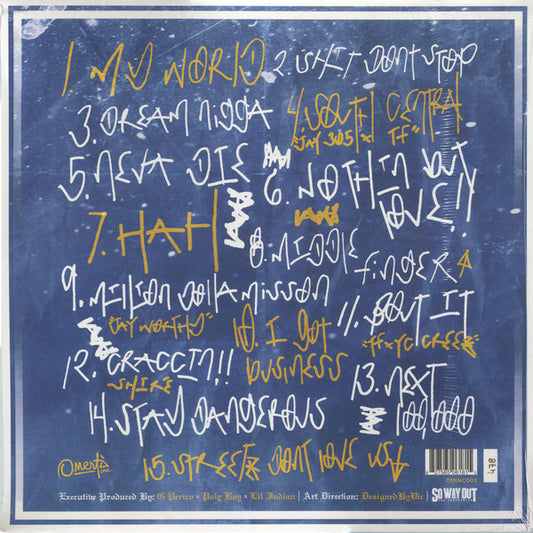 1. MY WORLD 2. SHIT DONT STOP
3. DREAM NIGGA 4. SOUTH CENTRAL
"JAY 305 x TF"
5. NEVA DIE 6. NOTHIN BUT LOVE!!
7. HAH 8. MIDDLE FINGER
9. MILLION DOLLA MISSON
"JAY WORTHY" 10. I GOT BUSINESS
11. BOUT IT
"TF x YG CREEK"
12. CRACCIN!!
SHIRE
13. NEXT 100,000
14. STAY DANGEROUS
15. STREETS DONT LOVE US
Omerta inc
Executive Produced By: G Perico • Poly Boy • Lil Indian | Art Direction: DesignedByVic
OMINC002
478
SO WAY OUT